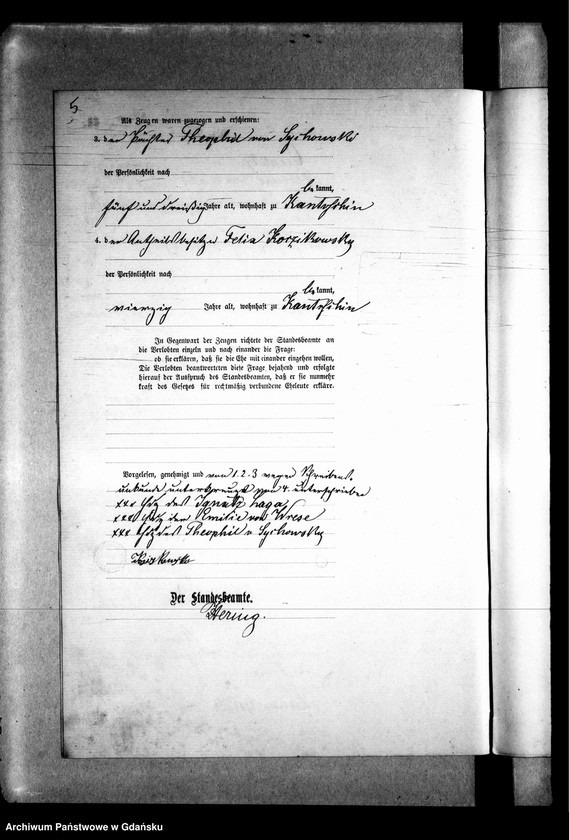 5
Als Zeugen waren zugezogen und erschienen:
3. der Pächter Theophil von Sychowski
der Persönlichkeit nach
be kannt,
fünf und dreißig Jahre alt, wohnhaft zu
4. der Antheilsbesitzer
der Persönlichkeit nach
be kannt,
vierzig Jahre alt, wohnhaft zu
In Gegenwart der Zeugen richtete der Standesbeamte an
die Verlobten einzeln und nach einander die Frage:
ob sie erklären, daß sie die Ehe mit einander eingehen wollen,
Die Verlobten beantworteten diese Frage bejahend und erfolgte
hierauf der Ausspruch des Standesbeamten, daß er sie nunmehr
kraft des Gesetzes für rechtmäßig verbundene Eheleute erkläre.
Vorgelesen, genehmigt und von 1. 2. 3 wegen Schreibens-
unkunde unterkreuzt von 4. unterschrieben
xxx Hdz des Ignatz Laga
xxx Hdz der Emilie von Wrese
xxx Hdz des Theophil v Sychowsky
Der Standesbeamte.
Hering.
Archiwum Państwowe w Gdańsku